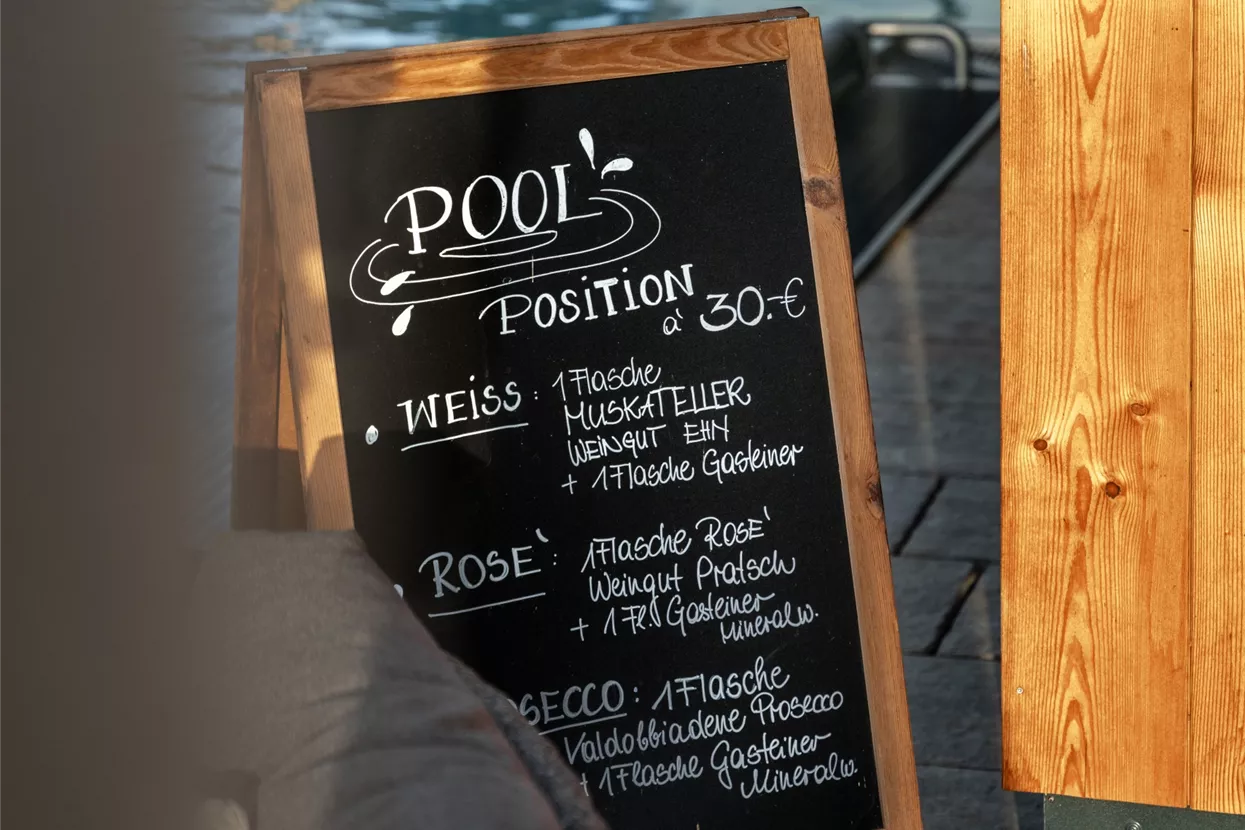 POOL
POSITION
a' 30.-€
• WEISS: 1 Flasche
MUSKATELLER
WEINGUT EHN
+ 1 Flasche Gasteiner
• ROSE': 1 Flasche ROSE'
Weingut Pratsch
+ 1 Fl. Gasteiner
Mineralw.
OSECCO: 1 Flasche
Valdobbiadene Prosecco
+ 1 Flasche Gasteiner
Mineralw.